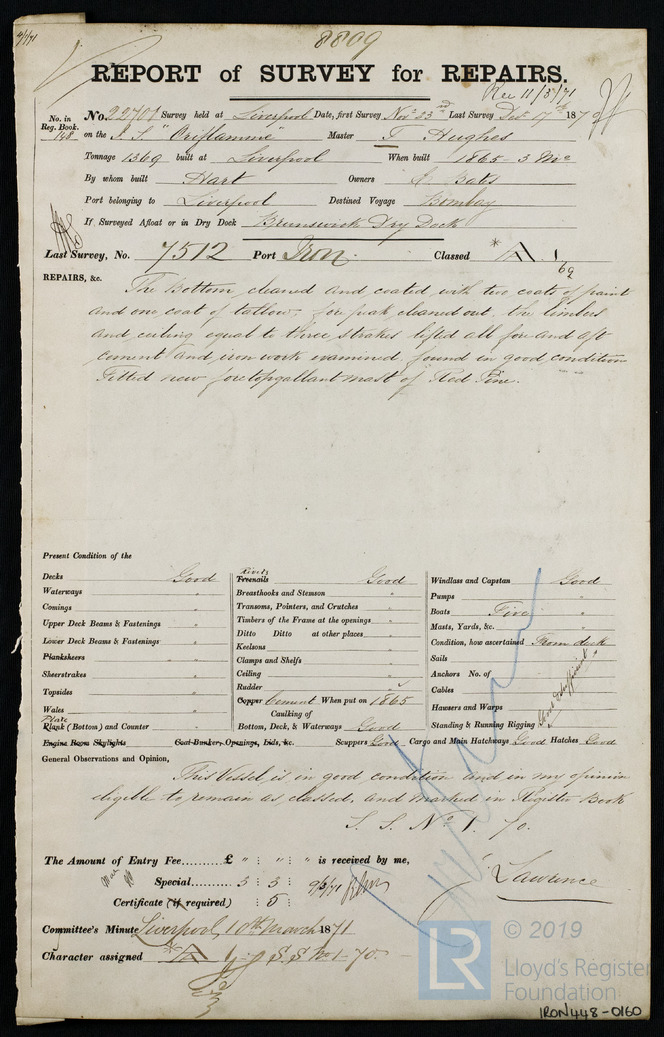 8809
REPORT of SURVEY for REPAIRS.
Rec 11/3/71
No. in Reg. Book. 148
No. 22701 Survey held at Liverpool Date, first Survey Novr 23rd Last Survey Decr 17th 1870
on the I. S. "Oriflamme" Master T Hughes
Tonnage 1369 built at Liverpool When built 1865 - 3 Mo
By whom built Hart Owners E Bates
Port belonging to Liverpool Destined Voyage Bombay
If Surveyed Afloat or in Dry Dock Brunswick Dry Dock
Last Survey, No. 7512 Port Iron Classed * A 1/69
REPAIRS, &c.
The Bottom cleaned and coated with two coats of paint
and one coat of tallow, fore peak cleaned out, the limbers
and ceiling equal to three strakes lifted all fore and aft
cement and iron work examined, found in good condition
Fitted new foretopgallant mast of Red Pine.
Present Condition of the
Decks Good
Waterways "
Comings "
Upper Deck Beams & Fastenings "
Lower Deck Beams & Fastenings "
Planksheers
Sheerstrakes "
Topsides "
Wales "
Plate
Plank (Bottom) and Counter "
Engine Room Skylights
Rivets
Treenails Good
Breasthooks and Stemson "
Transoms, Pointers, and Crutches "
Timbers of the Frame at the openings "
Ditto Ditto at other places "
Keelsons "
Clamps and Shelfs "
Ceiling "
Rudder
Copper Cement When put on 1865
Caulking of
Bottom, Deck, & Waterways Good
Coal Bunker, Openings, Lids, &c.
Scuppers Good
Windlass and Capstan Good
Pumps "
Boats Five "
Masts, Yards, &c. "
Condition, how ascertained From deck
Sails
Anchors No. of
Cables
Hawsers and Warps
Standing & Running Rigging
Good & Sufficient
Cargo and Main Hatchways Good Hatches Good
General Observations and Opinion,
This Vessel is in good condition and in my opinion
eligible to remain as classed, and marked in Register Book
S. S. No 1. 70.
The Amount of Entry Fee.......... £ " : " : " is received by me,
Special...... 5 : 5 : 9/3/71
Certificate (if required) : 5 :
J Lawrence
Committee's Minute Liverpool, 10th March 1871
Character assigned * A 1 S.S No 1-70.
LR
© 2019
Lloyd's Register
Foundation
IRON448-0160